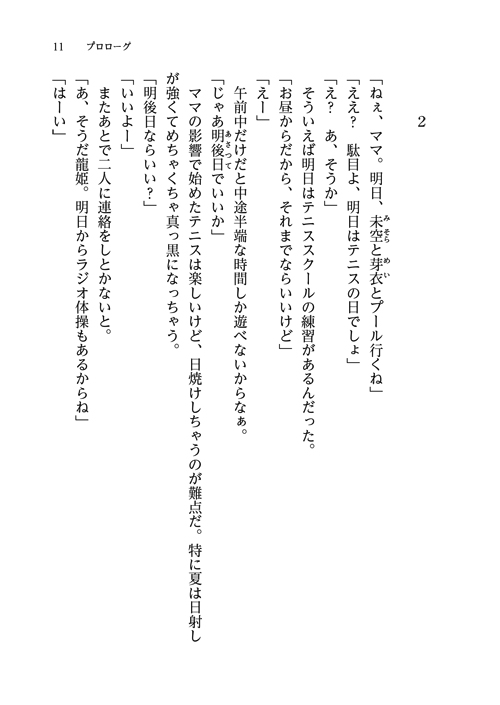 11 プロローグ
2
「ねぇ、ママ。明日、未空と芽衣とプール行くね」
みそら
めい
「ええ？　駄目よ、明日はテニスの日でしょ」
「え？　あ、そうか」
そういえば明日はテニススクールの練習があるんだった。
「お昼からだから、それまでならいいけど」
「えー」
午前中だけだと中途半端な時間しか遊べないからなぁ。
「じゃあ明後日でいいか」
あさって
ママの影響で始めたテニスは楽しいけど、日焼けしちゃうのが難点だ。特に夏は日射し
が強くてめちゃくちゃ真っ黒になっちゃう。
「明後日ならいい？」
「いいよー」
またあとで二人に連絡をしとかないと。
「あ、そうだ龍姫。明日からラジオ体操もあるからね」
「はーい」